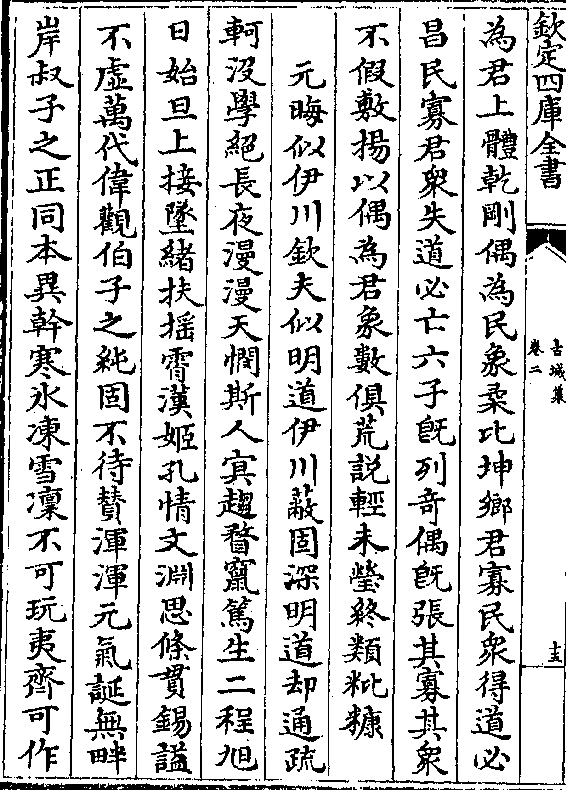 欽定四庫全書
古城集
卷二
十五
為君上體乾剛偶為民象桑比坤鄉君寡民衆得道必
昌民寡君衆失道必亡六子旣列竒偶旣張其寡其衆
不假敷揚以偶為君象數俱荒説輕未瑩終類粃糠
元晦似伊川欽夫似明道伊川蔽固深明道却通疏
軻沒學絕長夜漫漫天憫斯人㝠趨瞀竄篤生二程旭
日始旦上接墜緒扶揺霄漢姬孔情文淵思條貫錫謚
不虛萬代偉觀伯子之純固不待賛渾渾元氣誕無畔
岸叔子之正同本異幹寒氷凍雪凜不可玩夷齊可作